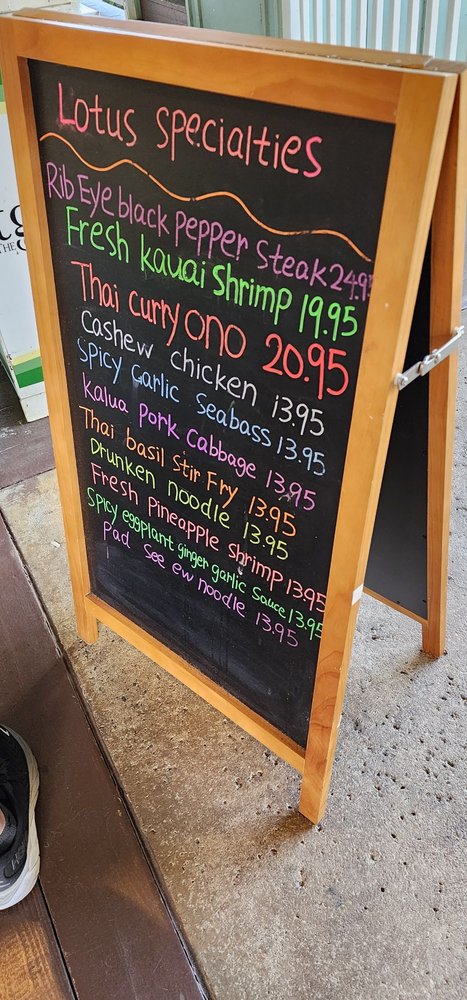 Lotus specialties
Rib Eye black pepper Steak 24.95
Fresh kauai Shrimp 19.95
Thai curry ono 20.95
Cashew chicken 13.95
Spicy Garlic Seabass 13.95
Kalua pork cabbage 13.95
Thai basil Stir Fry 13.95
Drunken noodle 13.95
Fresh Pineapple shrimp 13.95
Spicy eggplant ginger garlic Sauce 13.95
pad see ew noodle 13.95
THE